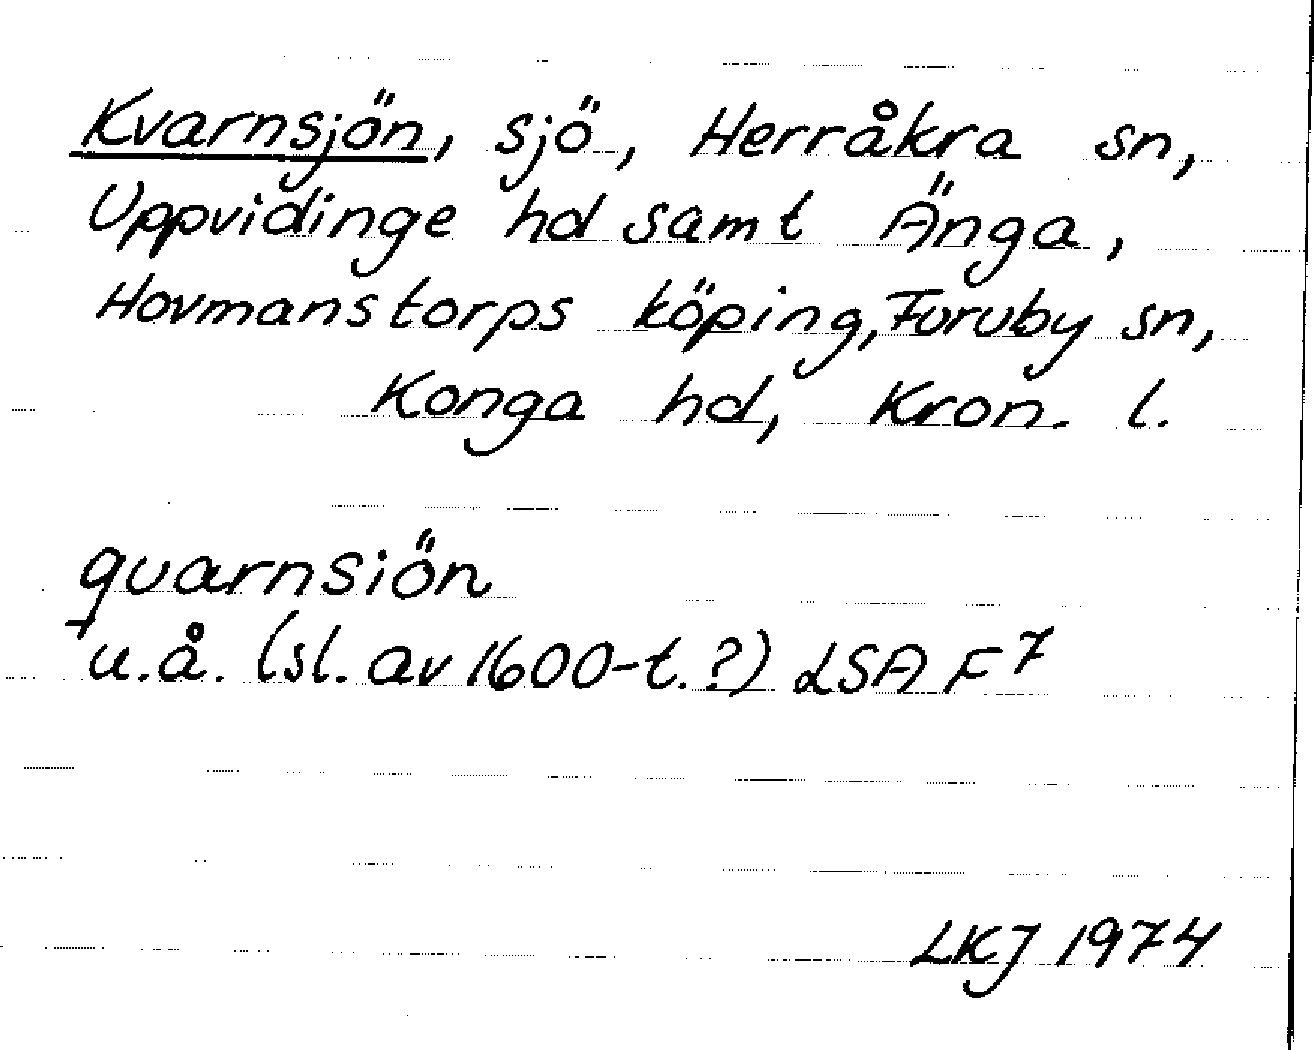 Kvarnsjön, sjö, Herråkra sn,
Uppvidinge hd samt Änga,
Hovmanstorps köping, Furuby sn,
Konga hd, Kron. l.
quarnsiön
u.å. (sl. av 1600-t.?) LSA F7
LKJ 1974